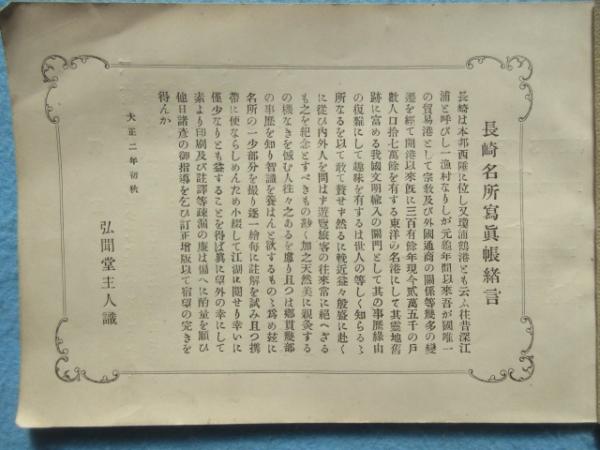 長崎名所寫眞帳緒言
長崎は本邦西陲に位し又瓊浦鶴港とも云ふ往昔深江
浦と呼びし一漁村なりしが元龜年間以來吾が國唯一
の貿易港として宗敎及び外國通商の關係等幾多の變
遷を經て開港以來旣に三百有餘年現今貳萬五千の戶
數人口拾七萬餘を有する東洋の名港にして其靈地舊
跡に富める我國文明輸入の關門として其の事歷緣由
の複雜にして趣味を有するは世人の等しく知らるゝ
所なるを以て敢て贅せず然るに輓近益々殷盛に赴く
に從ひ內外人を問はず遊覽旅客の往來常に絕へざる
も之を紀念とすべきもの尠く加之天然美に親炙する
の機なきを憾む人往々之あるを慮り且つは鄕貫幾部
の事歷を知り智識を養はんと欲するものゝ爲め玆に
名所の一少部分を撮り逐一繪每に註解を試み且つ携
帶に便ならしめんため小綴して江湖に問せり幸いに
僅少なりとも益することを得ば眞に望外の幸にして
素より印刷及び註譯等疎漏の廉は偏へに酌量を願ひ
他日諸彥の御指導を乞ひ訂正增版以て宿望の完きを
得んか
大正二年初秋
弘聞堂主人識